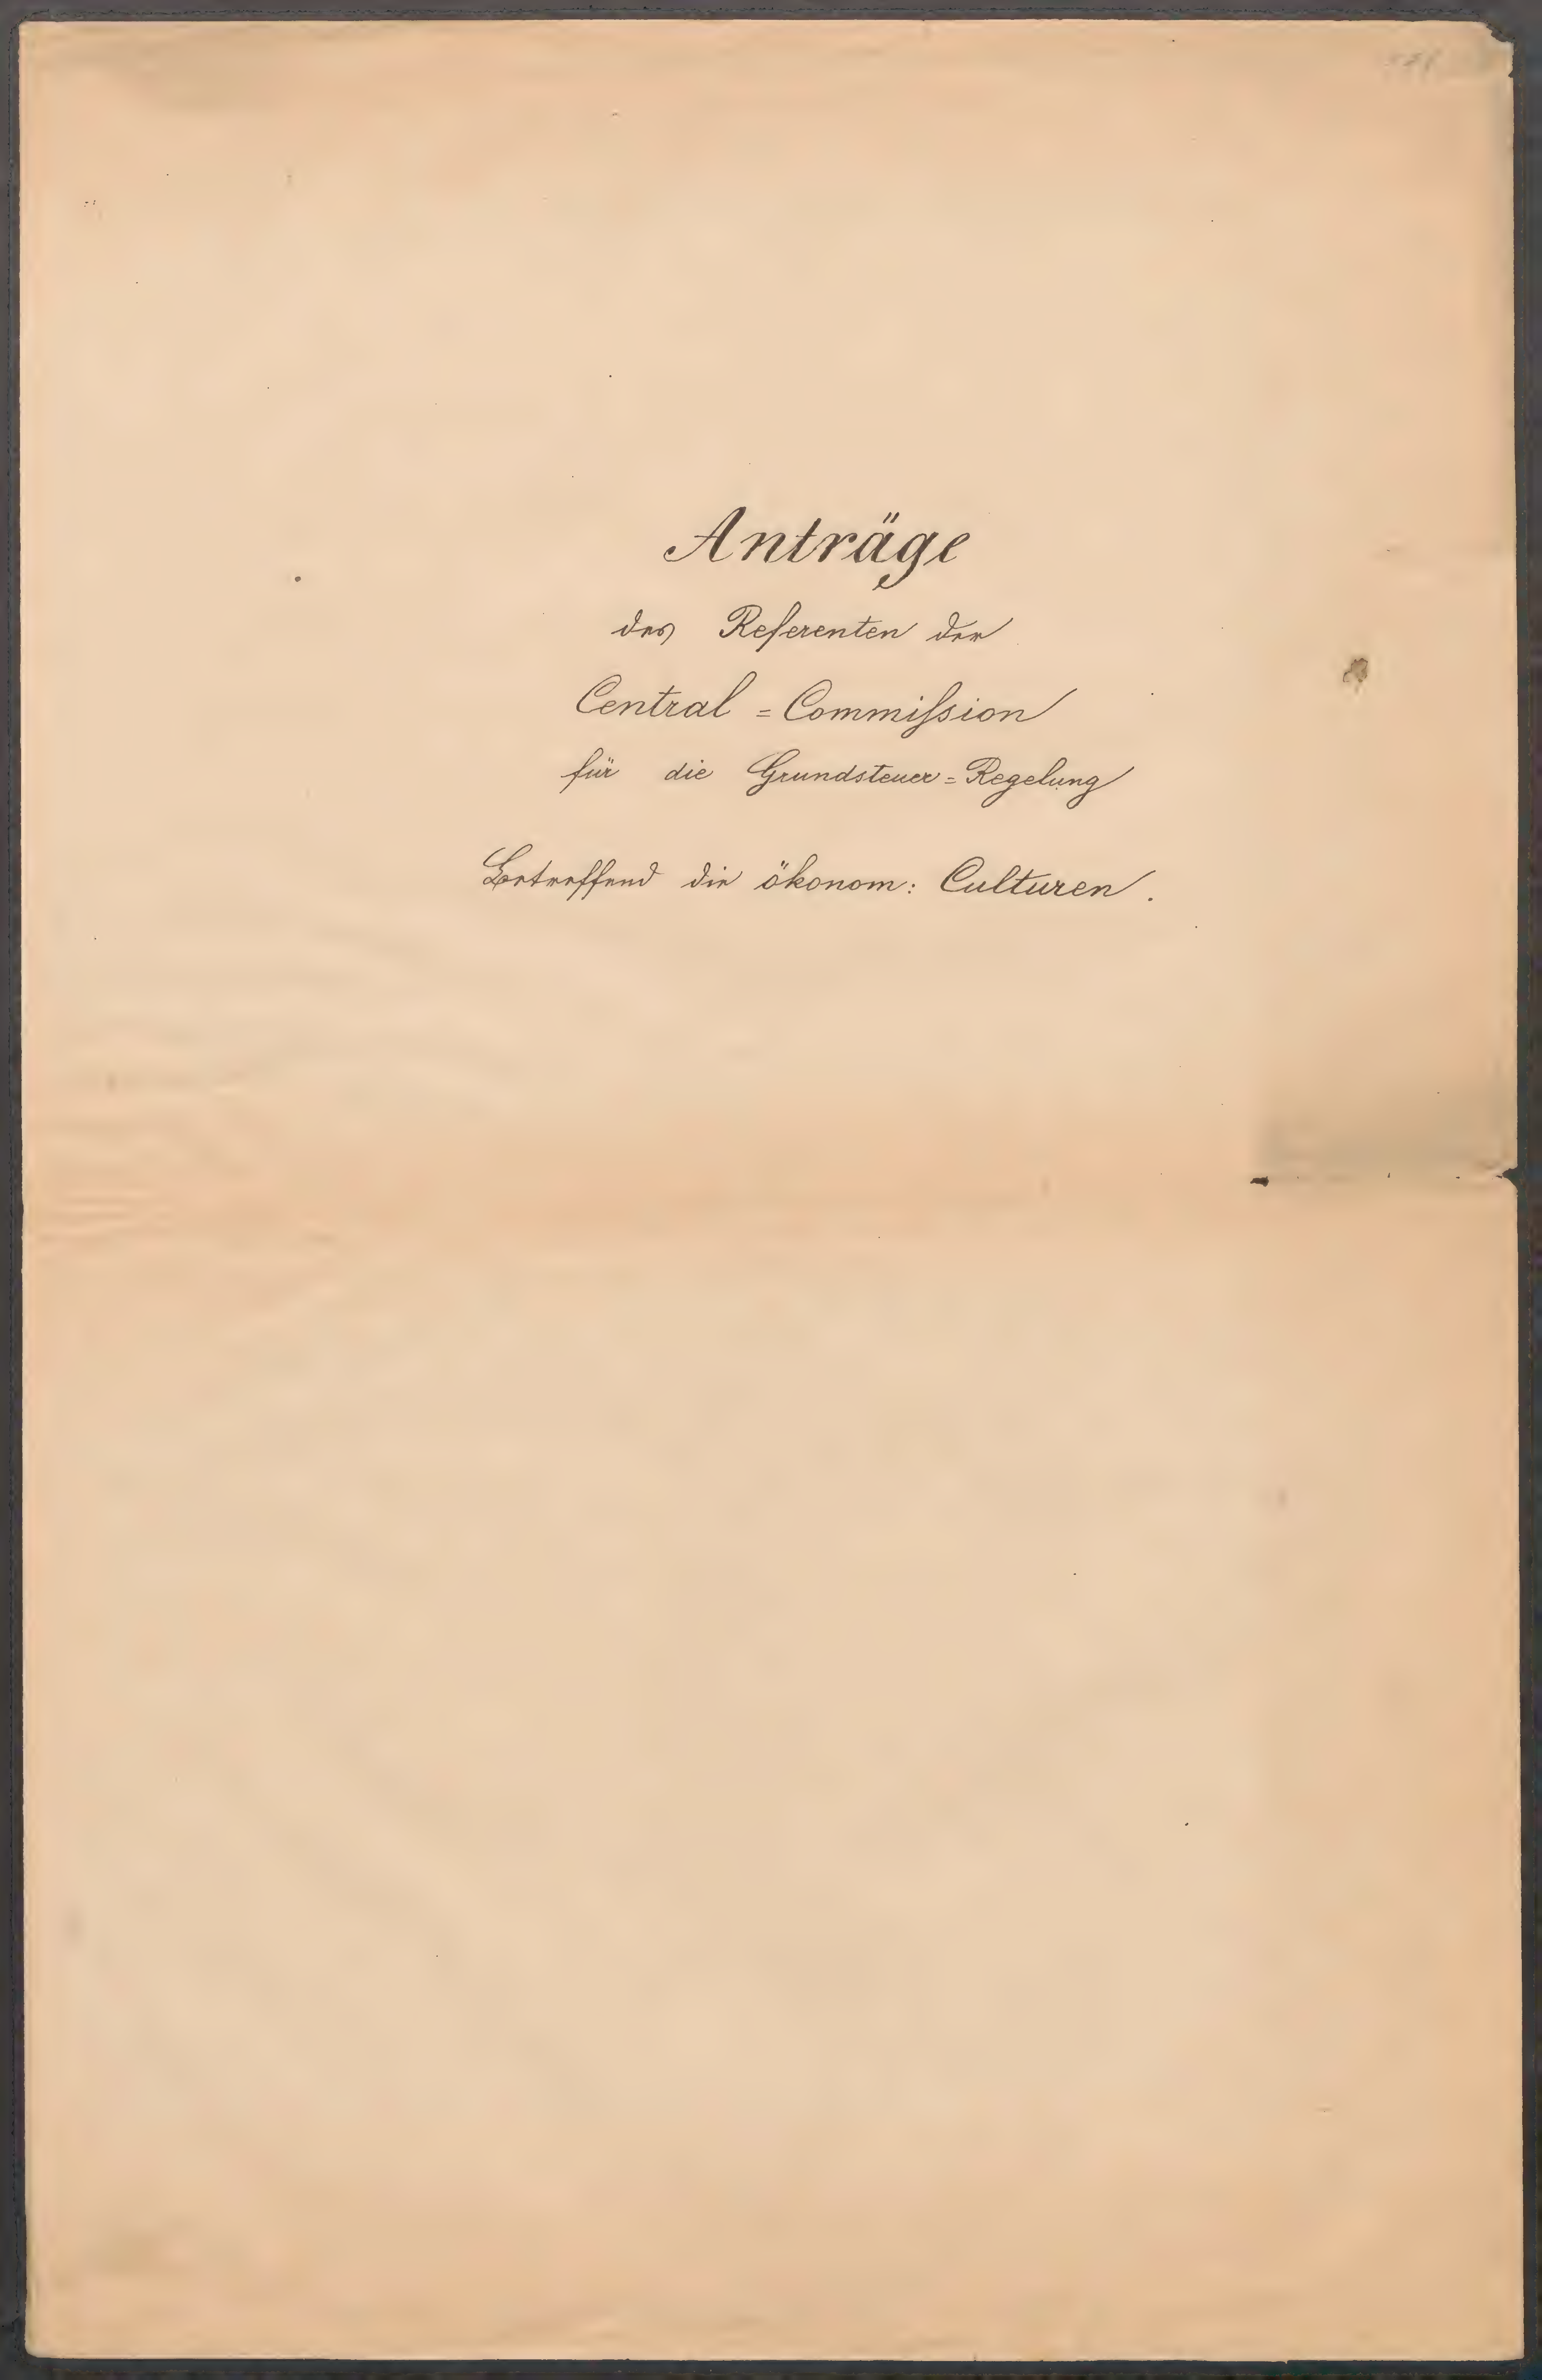 Anträge
des Referenten der
Central = Commiſsion
für die Grundsteuer = Regelung
Betreffend die ökonom: Culturen.